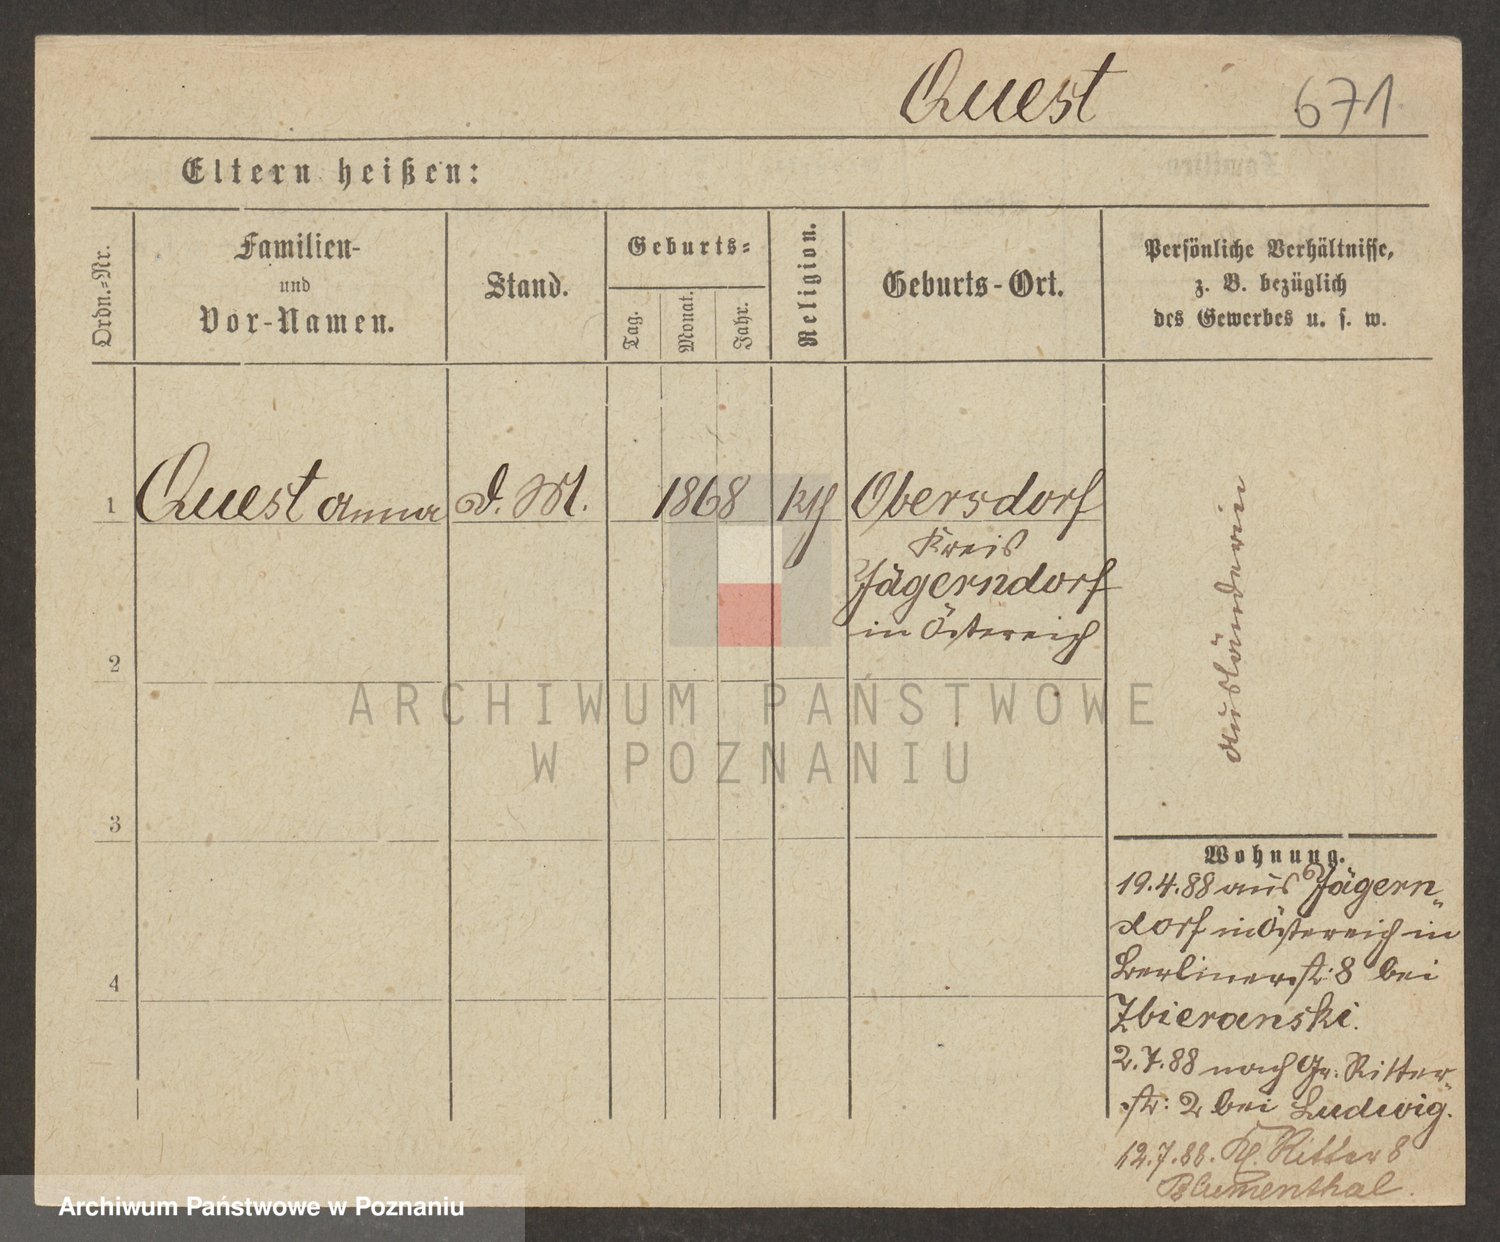 Quest
671
Eltern heißen:
Ordn.-Nr.
Familien-
und
Vor-Namen.
Stand.
Geburts-
Tag.
Monat.
Jahr.
Religion.
Geburts-Ort.
Persönliche Verhältnisse,
z. B. bezüglich
des Gewerbes u. s. w.
1 Quest Anna D. M. 1868 kth Obersdorf
Kreis
Jägerndorf
in Östereich
Ausländerin
2
3
4
Wohnung.
19.4.88 aus Jägern-
dorf in Östereich in
Berlinerstr: 8 bei
Zbieranski.
2.7.88 nach Gr. Ritter-
str: 2 bei Ludwig.
12.7.88. Kl. Ritter 8
Blumenthal.
ARCHIWUM PAŃSTWOWE
W POZNANIU
Archiwum Państwowe w Poznaniu